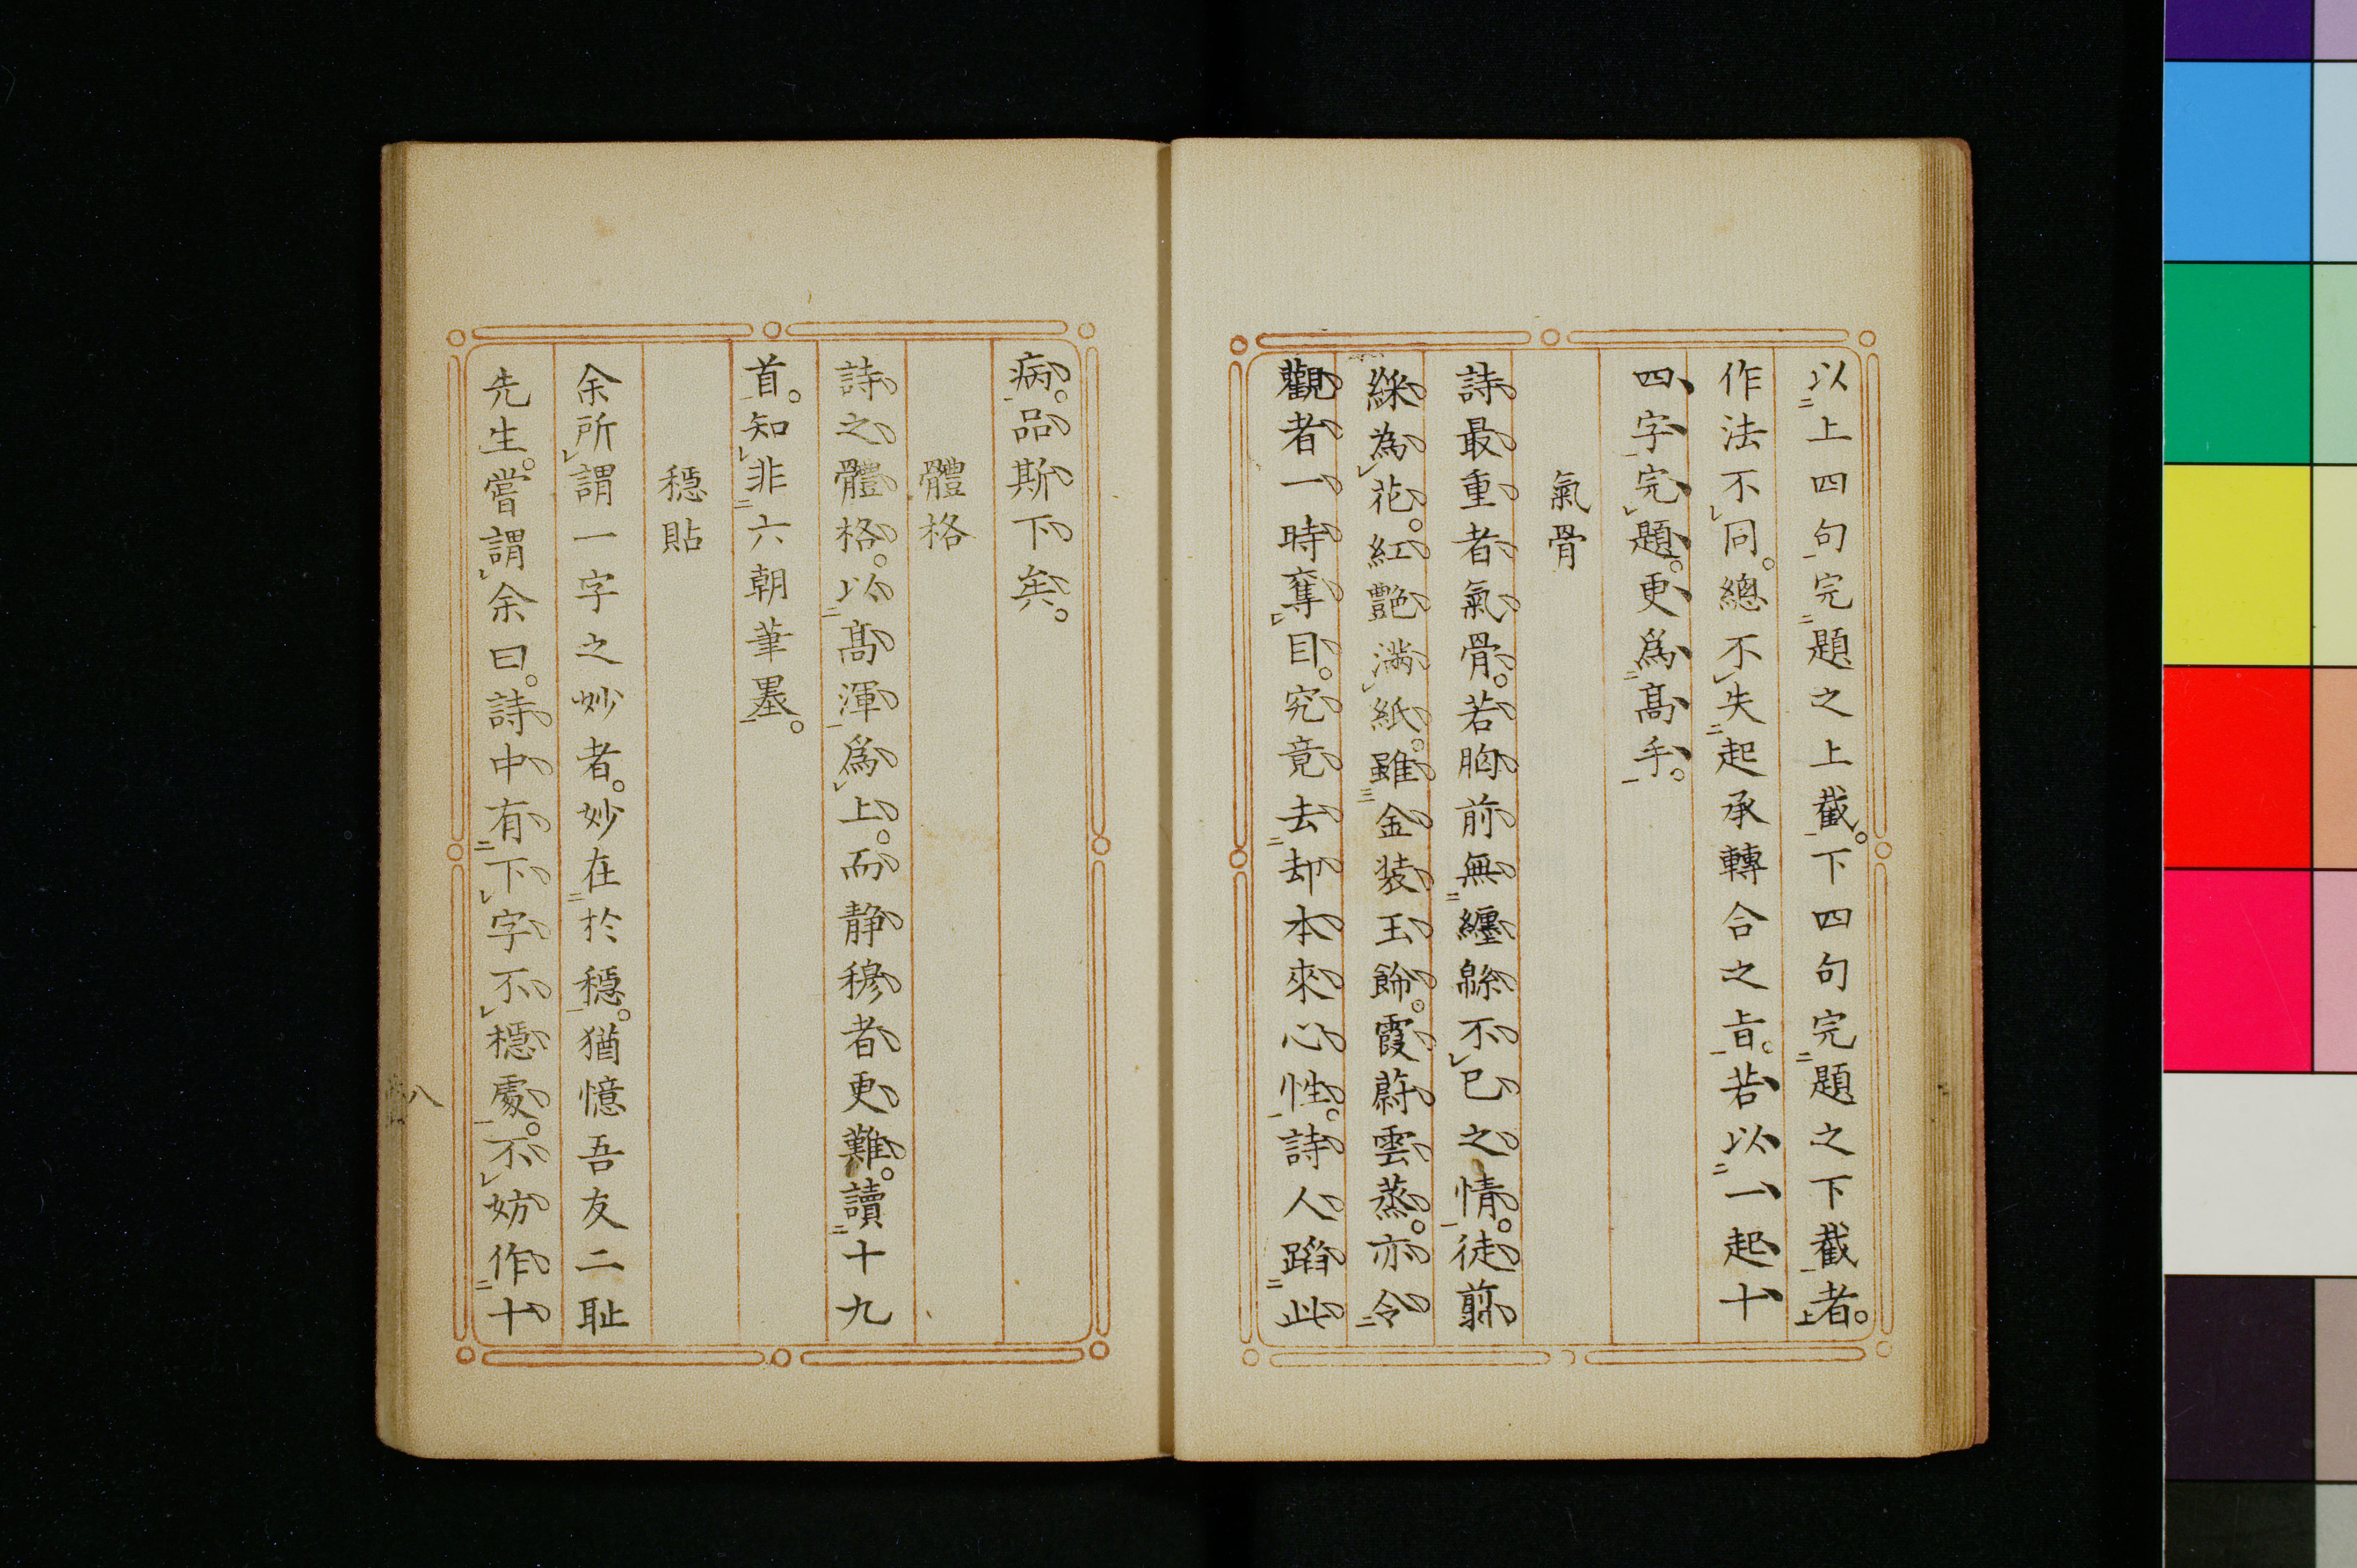 以上四句完題之上截。下四句完題之下截者。
作法不同。總不失起承轉合之旨。若以一起十
四字完題。更爲髙手。
氣骨
詩最重者氣骨。若胸前無纏緜不已之情。徒翦
綵為花。紅艷滿紙。雖金装玉飾。霞蔚雲蒸。亦令
觀者一時奪目。究竟去却本來心性。詩人蹈此
病。品斯下矣。
體格
詩之體格。以髙渾爲上。而静穆者更難。讀十九
首。知非六朝筆墨。
穏貼
余所謂一字之妙者。妙在於穏。猶憶吾友二耻
先生。嘗謂余曰。詩中有下字不穏處。不妨作十
八